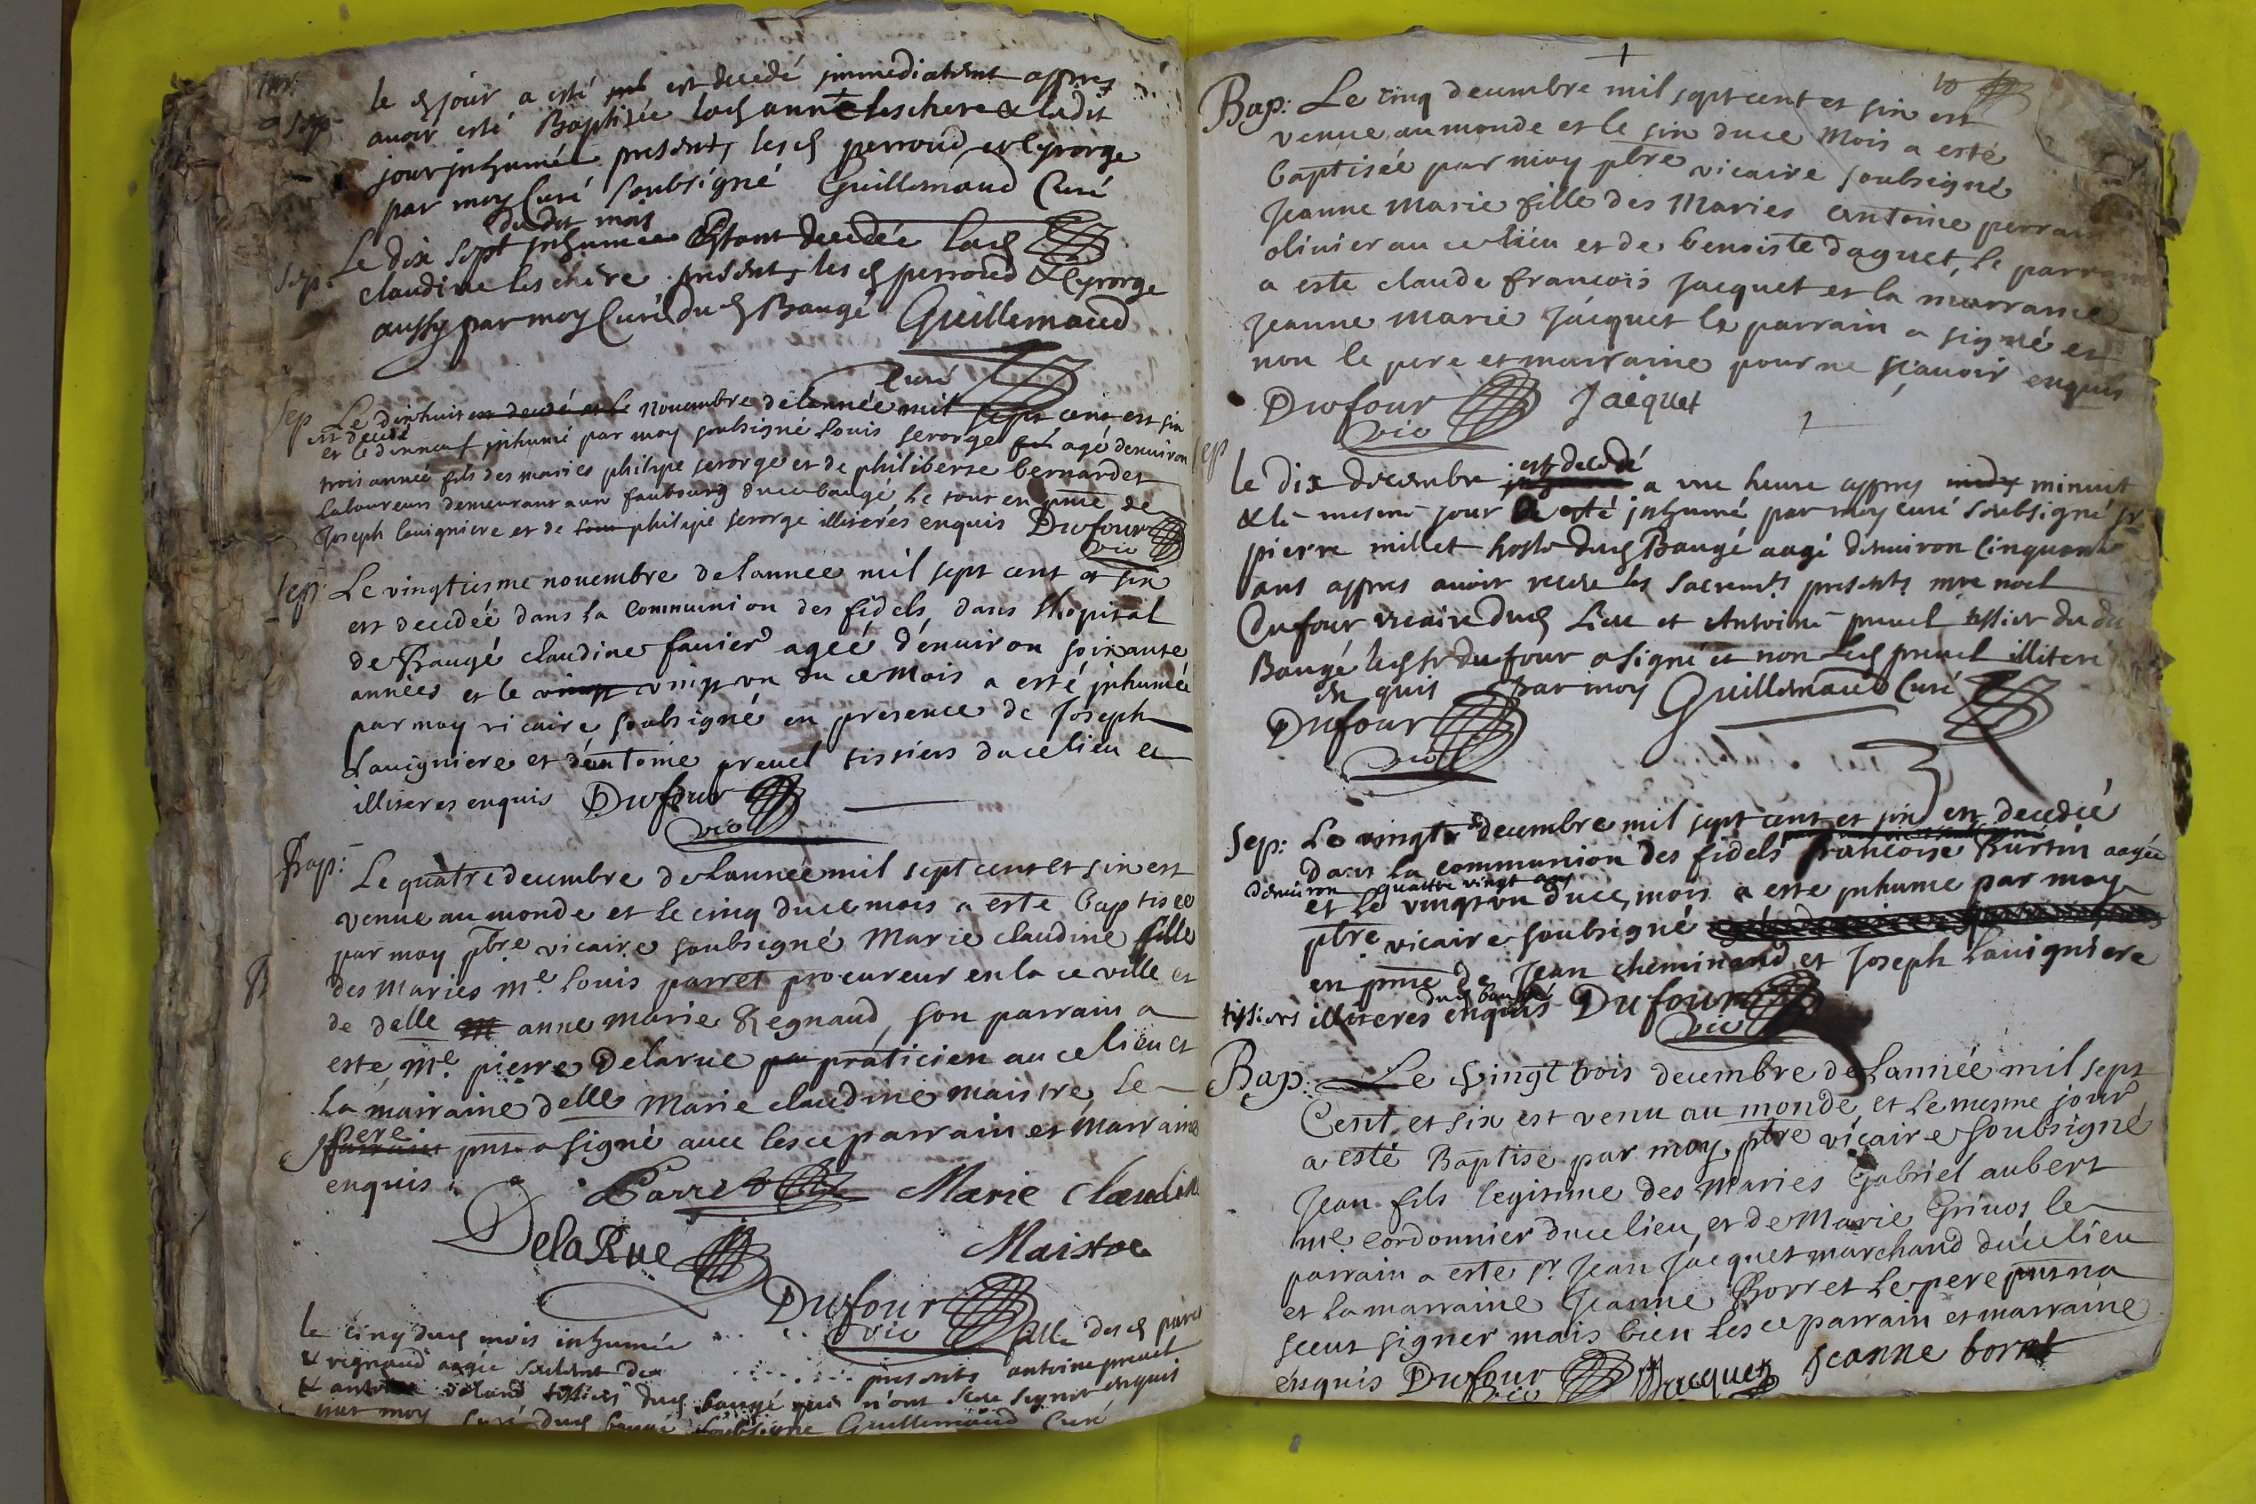 le d jour a esté est decedé immediatemt appres
avoir esté Baptisée lad anne leschere & ledit
jour inhumée presents lesd perroud et George
par moy Curé soubsigné Guillemaud Curé
dudit mois
sep. Le dix sept inhumée Estant decedée lad
claudine leschere presents lesd perroud & George
aussy par moy Curé dud Baugé Guillemaud
Curé
sep Le dixhuit est decedé et le novembre de lannée mil sept cent et six
est decedé
et le dixneuf inhumé par moy soubsigné Louis George agé denviron
trois année fils des maries philipe George et de philiberte bernardet
laboureurs demeurant aux faubourg duce baugé le tout en pnce de
Joseph lavigniere et de philipe George illiterés enquis Dufour
vic
sep: Le vingtiesme novembre de lannée mil sept cent et six
est decedée dans la Communion des fidels, dans lhopital
de Baugé claudine favier agée d'environ soixante
années et le vingt vingt un du ce mois a esté inhumée
par moy vicaire soubsigné en presence de Joseph
Lavigniere et d'antoine prevel tissiers duce lieu et
illiteres enquis Dufour
vic
Bap: Le quatre decembre de lannée mil sept cent et six est
venue au monde et le cinq duce mois a esté baptisée
par moy pbre vicaire soubsigné Marie claudine fille
des maries me Louis parret procureur en la ce ville et
de delle anne marie Regnaud, son parrain a
esté me pierre Delarue praticien au ce lieu et
La mairaine delle Marie claudine maistre, Le
pere
parrain pnt a signé avec lesce parrain et marraine
enquis. Parret Marie Claudine
DelaRue Maistre
Dufour
vic
le cinq dud mois inhumée fille desd parret
& regnaud agée seulemt de presents antoine prevel
& antoine tissiers dud baugé qui n'ont sceu signer enquis
par moy curé dud baugé soubsigné Guillemaud Curé
10
Bap: Le cinq decembre mil sept cent et six est
venue au monde et le six duce mois a esté
baptisée par moy pbre vicaire soubsigné
Jeanne Marie fille des Maries antoine perrain
olivier au ce lieu et de benoiste daguet, le parrain
a esté claude francois Jacquet et la marraine
Jeanne Marie Jacquet le parrain a signé et
non le pere et marraine pour ne scavoir enquis
Dufour Jacquet
vic
sep est decedé
le dix decembre a une heure appres midy minuit
& le mesme jour a esté inhumé par moy curé soubsigné sr
pierre millet hoste dud Baugé aagé denviron Cinquante
ans appres avoir receu les sacremts presents mre noel
Dufour vicaire dud Lieu et Antoine prevel tissier du dit
Baugé led sr dufour a signé et non led prevel illiteré
en quis par moy Guillemaud Curé
Dufour
vic
Sep: Le vingt decembre mil sept cent et six est decedée
dans la communion des fidels francoise Burtin aagée
denviron quattre vingt ans
et le vingt un duce mois a esté inhume par moy
pbre vicaire soubsigné
en pnce de Jean cheminand et Joseph Lavigniere
dud baugé
tissiers illiteres enquis Dufour
vic
Bap: Le vingt trois decembre de Lannée mil sept
Cent et six est venu au monde et le mesme jour
a esté Baptisé par moy pbre vicaire soubsigné
Jean fils legitime des maries Gabriel aubert
me cordonnier duce lieu, et de Marie Grivos le
parrain a esté sr Jean Jacquet marchand duce lieu
et la marraine Jeanne Borret Le pere pnt na
sceut signer mais bien lesce parrain et marraine
enquis Dufour Jacquet Jeanne boret
vic